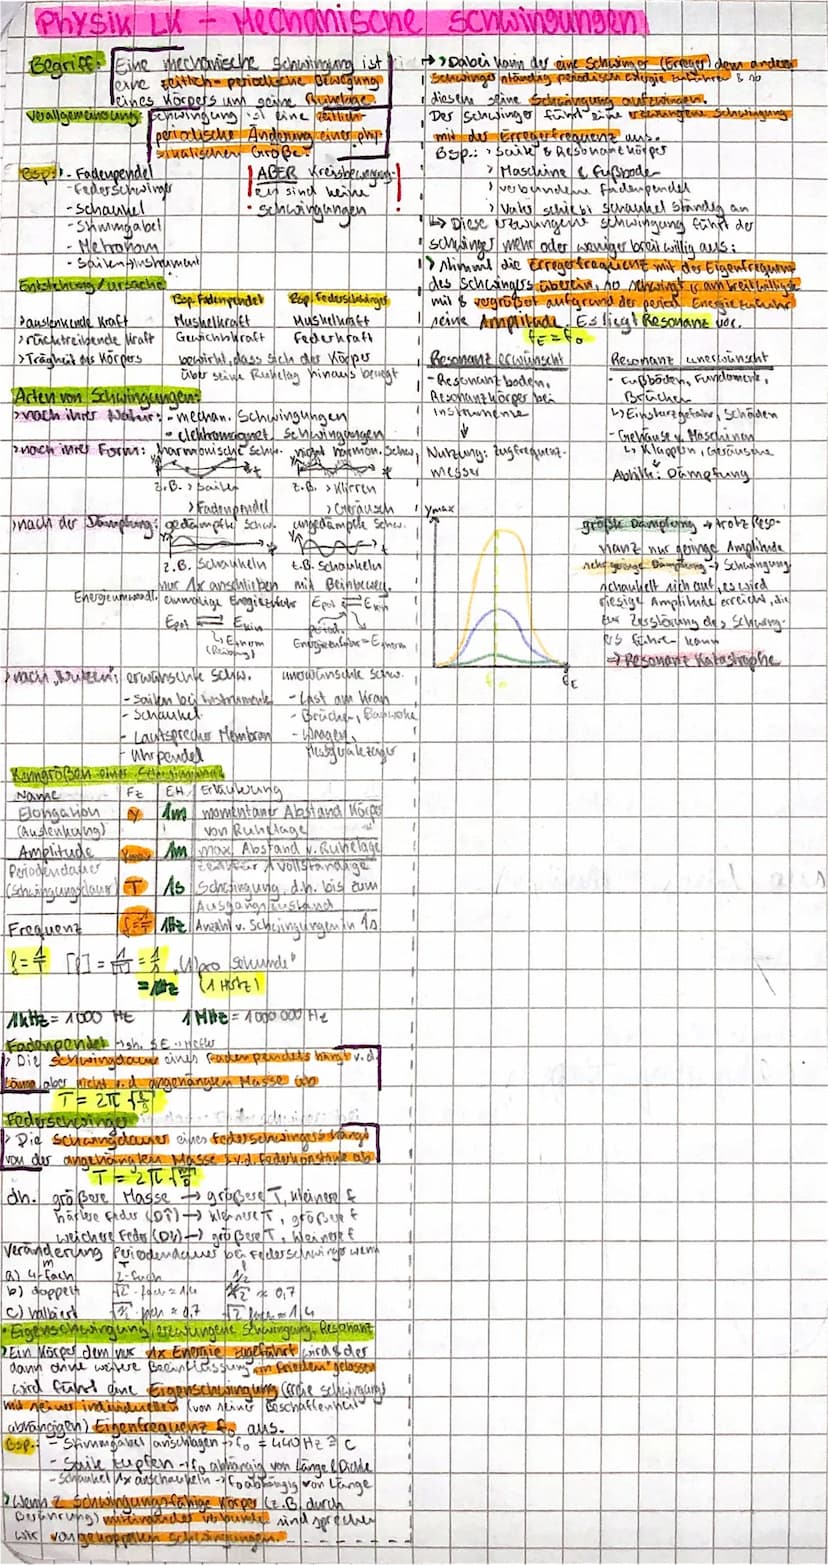 Physik LK - Mechanische Schwingungen
Begriff: Eine mechanische Schwingung ist
eine zeitlich-periodische Bewegung
eines Körpers um seine Ruhelage.
Verallgemeinerung: Schwingung ist eine zeitlich-
periodische Änderung einer phy-
sikalischen Größe.
Bsp.: - Fadenpendel
- Federschwinger
- Schaukel
- Stimmgabel
- Metronom
- Saiteninstrument
! ABER Kreisbewegung-
en sind keine
Schwingungen !
Entstehung/Ursache
Bsp. Fadenpendel Bsp. Federschwinger
> auslenkende Kraft Muskelkraft Muskelkraft
> rücktreibende Kraft Gewichtskraft Federkraft
> Trägheit des Körpers bewirkt, dass sich der Körper
über seine Ruhelag hinaus bewegt
Arten von Schwingungen:
> nach ihrer Natur: - mechan. Schwingungen
- elektromagnet. Schwingungen
> nach ihrer Form: harmonische Schw. nicht harmon. Schw.
z.B. > Saiten z.B. > Klirren
> Fadenpendel > Geräusch
> nach der Dämpfung: gedämpfte Schw. ungedämpfte Schw.
z.B. Schaukeln z.B. Schaukeln
nur 1x anschieben mit Beinbeweg.
Energieumwandl. einmalige Energiezufuhr Epot ⇌ Ekin
Epot ⇌ Ekin period.
↳ Etherm Energiezufuhr = Etherm
(Reibung)
> nach "Nutzen": erwünschte Schw. unerwünschte Schw.
- Saiten bei Instrumente - Last am Kran
- Schaukel - Brücken, Bauwerke
- Lautsprecher Membran - Wagen,
- Uhrpendel
Kenngrößen einer Schwingung
Name Fz EH Erläuterung
Elongation y 1m momentaner Abstand Körper
(Auslenkung) von Ruhelage
Amplitude ymax 1m max. Abstand v. Ruhelage
Periodendauer Zeit für 1 vollständige
(Schwingungsdauer) T 1s Schwingung, d.h. bis zum
Ausgangszustand
Frequenz f=1/T 1Hz Anzahl v. Schwingungen in 1s
f = 1/T [f] = 1/[T] = 1/s "1 pro Sekunde"
= 1Hz (1 Hertz)
1kHz = 1000 Hz 1 MHz = 1 000 000 Hz
Fadenpendel → sh. SE - Hefter
> Die Schwingdauer eines Fadenpendels hängt v.d.
Länge aber nicht v.d. angehängten Masse ab
T = 2π √(l/g)
Federschwinger
> Die Schwingdauer eines Federschwingers hängt
von der angehängten Masse & v.d. Federkonstante ab
T = 2π √(m/D)
dh. größere Masse → größere T, kleinere f
härtere Feder (D↑) → kleinere T, größer f
weichere Feder (D↓) → größere T, kleiner f
Veränderung Periodendauer bei Federschwinger wenn
m T f
a) 4-fach 2-fach 1/2
b) doppelt √2 · fach ≈ 1,4 1/√2 ≈ 0,7
c) halbiert √½ · fach ≈ 0,7 √2 fach ≈ 1,4
• Eigenschwingung, erzwungene Schwingung, Resonanz
> Ein Körper dem nur 1x Energie zugeführt wird & der
dann ohne weitere Beeinflussung "in Frieden" gelassen
wird führt eine Eigenschwingung (freie Schwingung)
mit seiner individuellen (von seiner Beschaffenheit
abhängigen) Eigenfrequenz f0 aus.
Bsp.: - Stimmgabel anschlagen → f0 = 440 Hz ≙ C
- Saite zupfen → f0 abhängig von Länge & Dicke
- Schaukel 1x anschaukeln → f0 abhängig von Länge
> Wenn 2 schwingungsfähige Körper (z.B. durch
Berührung) miteinander verbunden sind sprechen
wir von gekoppelten Schwingungen.
→ > Dabei kann der eine Schwinger (Erreger) dem anderen
Schwinger ständig periodisch Energie zuführen & so
diesem seine Schwingung aufzwingen.
Der Schwinger führt eine erzwungene Schwingung
mit der Erregerfrequenz aus.
Bsp.: > Saite & Resonanzkörper
> Maschine & Fußboden
> verbundene Fadenpendel
> Vater schiebt Schaukel ständig an
↳ Diese erzwungene Schwingung führt der
Schwinger mehr oder weniger breitwillig aus:
> Stimmt die Erregerfrequenz mit der Eigenfrequenz
des Schwingers überein, so schwingt er am breitwilligsten
mit & vergrößert aufgrund der period. Energiezufuhr
seine Amplitude. Es liegt Resonanz vor.
fE = f0
Resonanz erwünscht Resonanz unerwünscht
- Resonanzboden, - Fußböden, Fundamente,
Resonanzkörper bei Brücken
Instrumente ↳ Einsturzgefahr, Schäden
↓ - Gehäuse v. Maschinen
Nutzung: Zugfrequenz- ↳ Klappern, Geräusche
messer Abhilfe: Dämpfung
ymax
f0 fE
größte Dämpfung → trotz Reso-
nanz nur geringe Amplitude
sehr geringe Dämpfung → Schwingung
schaukelt sich auf, es wird
riesige Amplitude erreicht, die
zur Zerstörung des Schwing-
ers führen kann
⇒ Resonanz Katastrophe